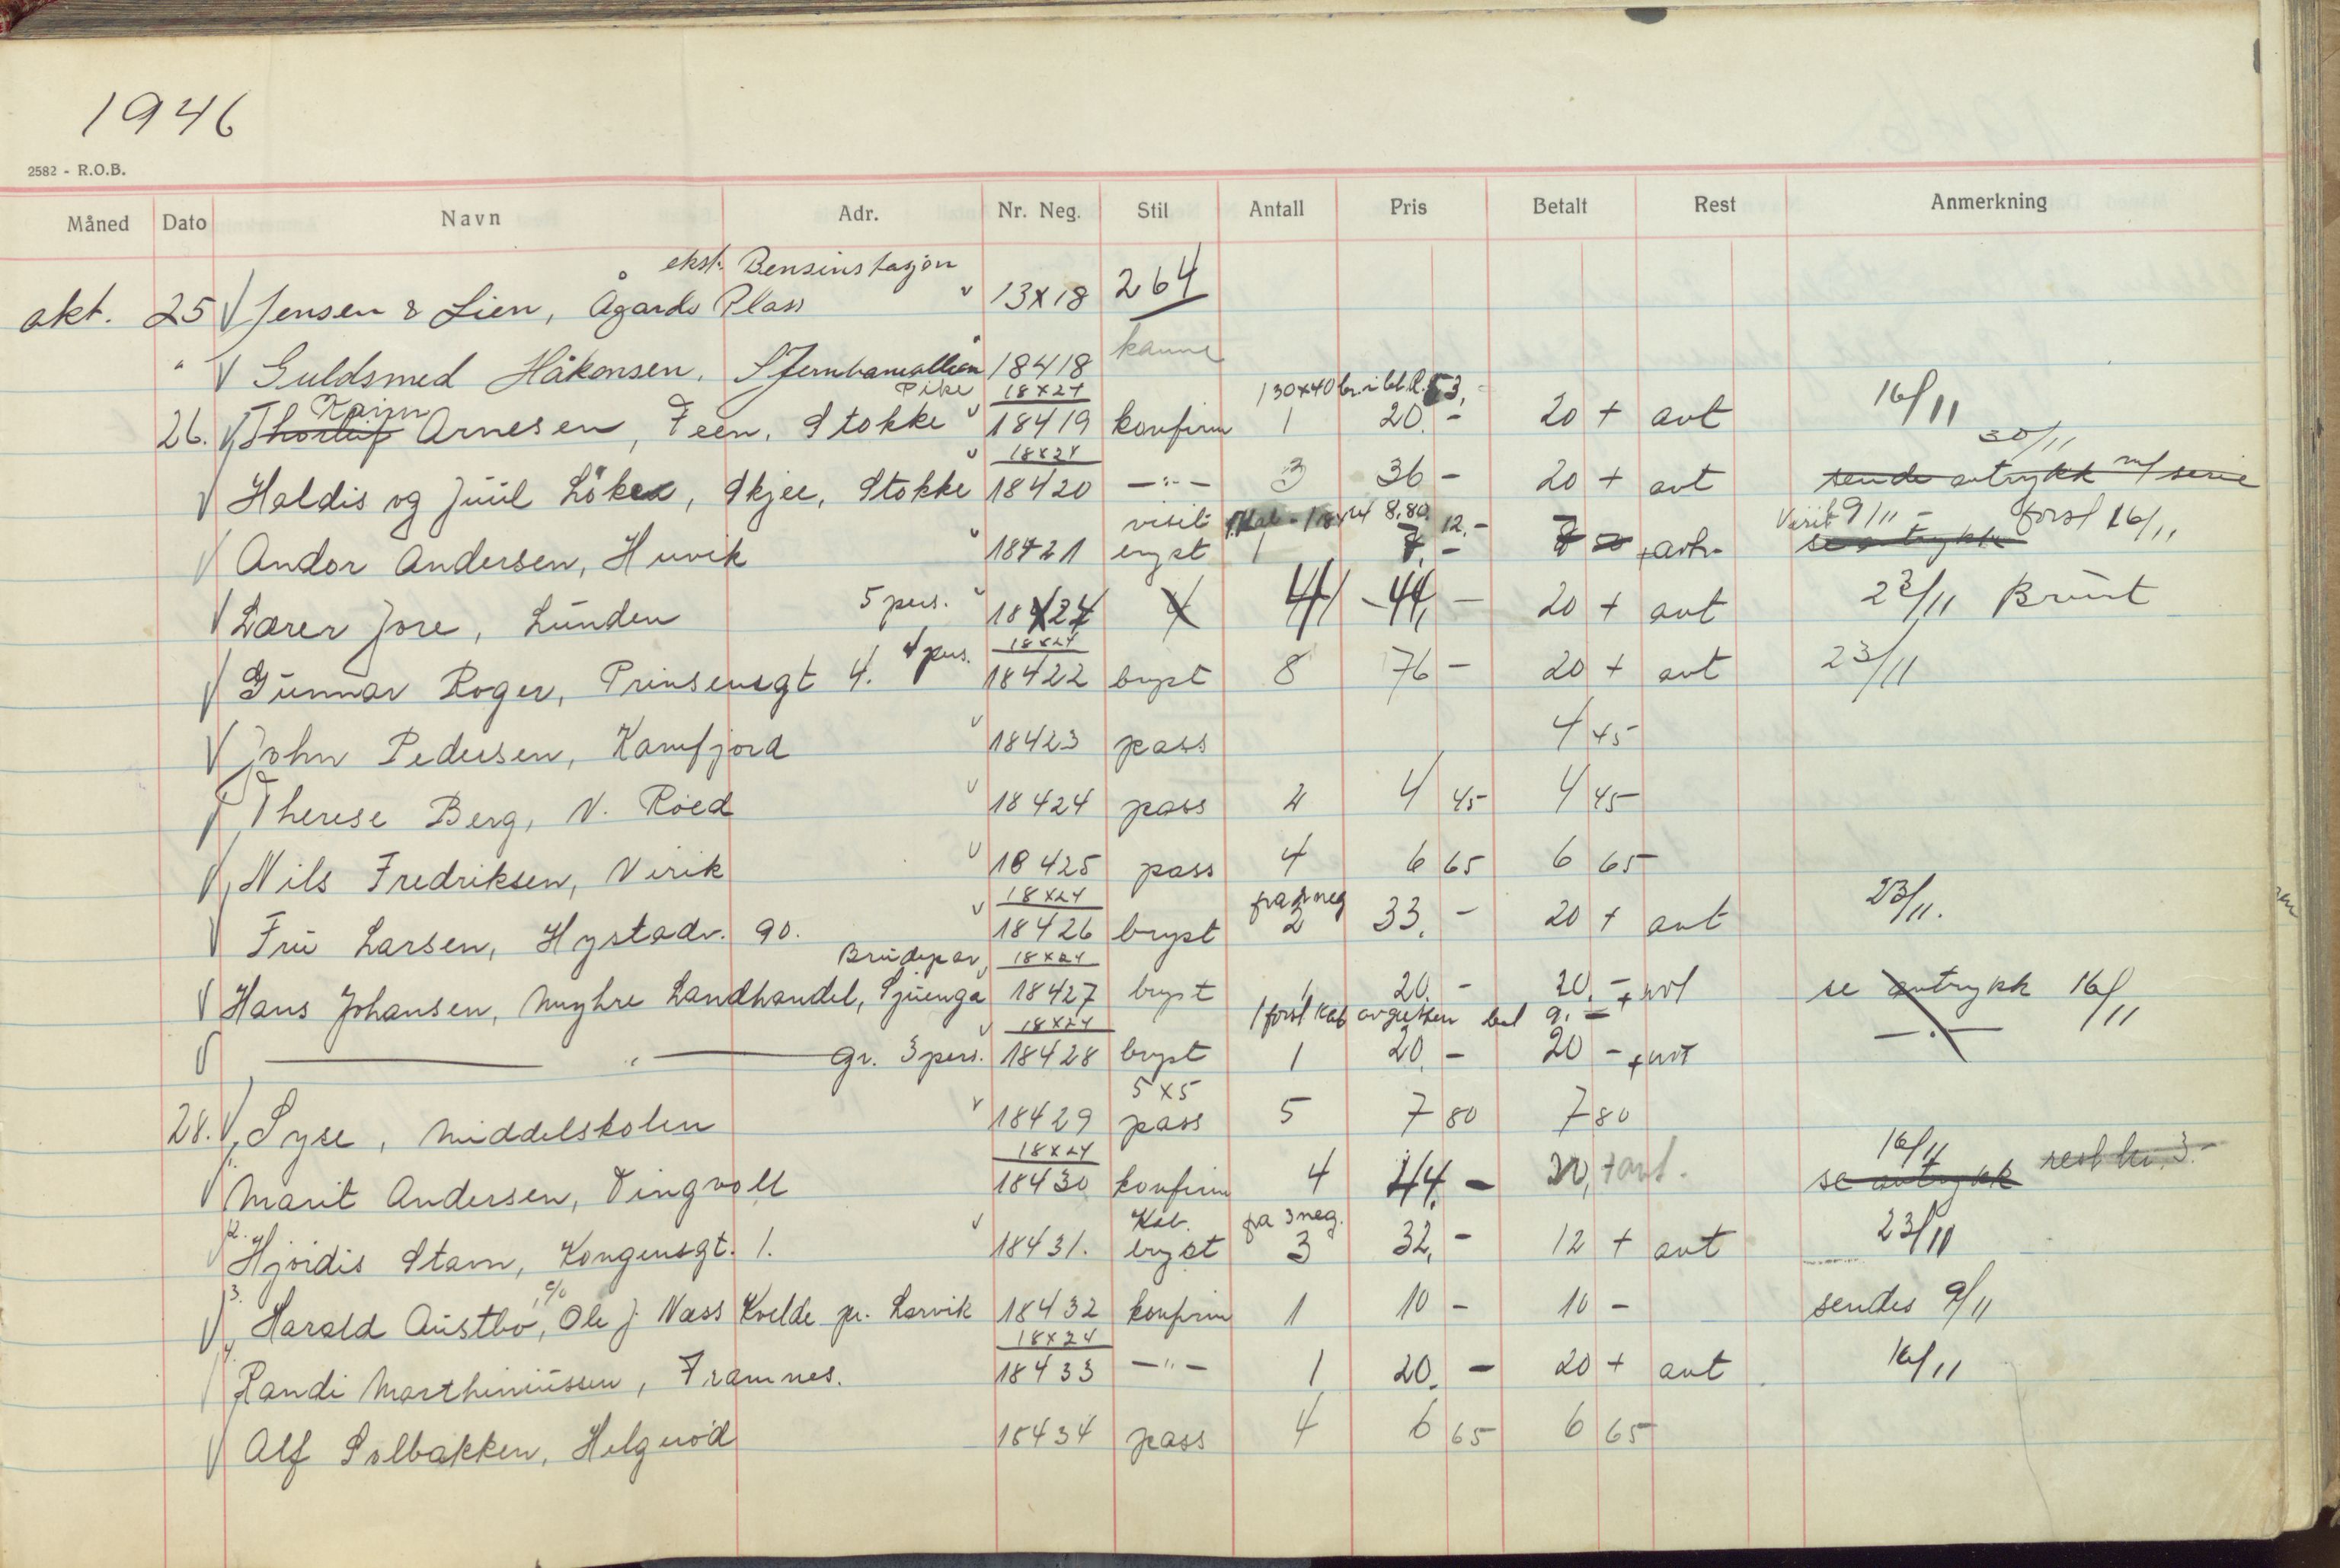 1946
2582 - R.O.B.
Måned Dato Navn Adr. Nr. Neg. Stil Antall Pris Betalt Rest Anmerkning
ekst. Bensinstasjon
okt. 25 Jensen & Lien, Ågards Plass 13x18 264
" Guldsmed Håkonsen, Jernbanealleen 18418 kanne
Pike 18x24 1 30x40 53,-
Karin
26. Thorleif Arnesen, Feen, Stokke 18419 konfirm 1 20,- 20 + avt 16/11
18x24 30/11
Haldis og Juul Löke, Skjee, Stokke 18420 -"- 3 36 - 20 + avt sende avtrykk m/ serie
visit 8,80 12,- Visit 9/11 - forst 16/11
Andor Andersen, Huvik 18421 bryst 1 7,- 7 + avtr se avtrykk
Lærer Jore, Lunden 5 pers. 18x24 4 4 44,- 20 + avt 23/11 Brunt
4 pers. 18x24
Gunnar Roger, Prinsensgt 4. 18422 bryst 8 76 - 20 + avt 23/11
John Pedersen, Kamfjord 18423 pass 4 45
Therese Berg, N. Röed 18424 pass 2 4 45 4 45
Nils Fredriksen, Virik 18425 pass 4 6 65 6 65
18x24 fra 2 neg
Fru Larsen, Hystadv. 90. 18426 bryst 2 33,- 20 + avt 23/11.
Brudepar 18x24
Hans Johansen, Myhre Landhandel, Sjuenga 18427 bryst 1 20,- 20,- + avt se avtrykk 16/11
18x24 1 forst kab avgusten bet 9,-
-"- Gr. 3 pers. 18428 bryst 1 20,- 20 - + avt -"-
5x5
28. Syse, Middelskolen 18429 pass 5 7 80 7 80
18x24 16/11 rest kr. 3.-
Marit Andersen, Tingvoll 18430 konfirm 4 44,- 20, + avt. se avtrykk
2. Kab. fra 3 neg.
Hjördis Stam, Kongensgt. 1. 18431. bryst 3 32,- 12 + avt 23/11
3. c/o
Harald Austbö, Ole J. Næss Kvelde pr. Larvik 18432 konfirm 1 10 - 10 - sendes 9/11
4. 18x24
Randi Marthiniussen, Framnes. 18433 -"- 1 20,- 20 + avt 16/11
Alf Solbakken, Helgeröd 18434 pass 4 6 65 6 65